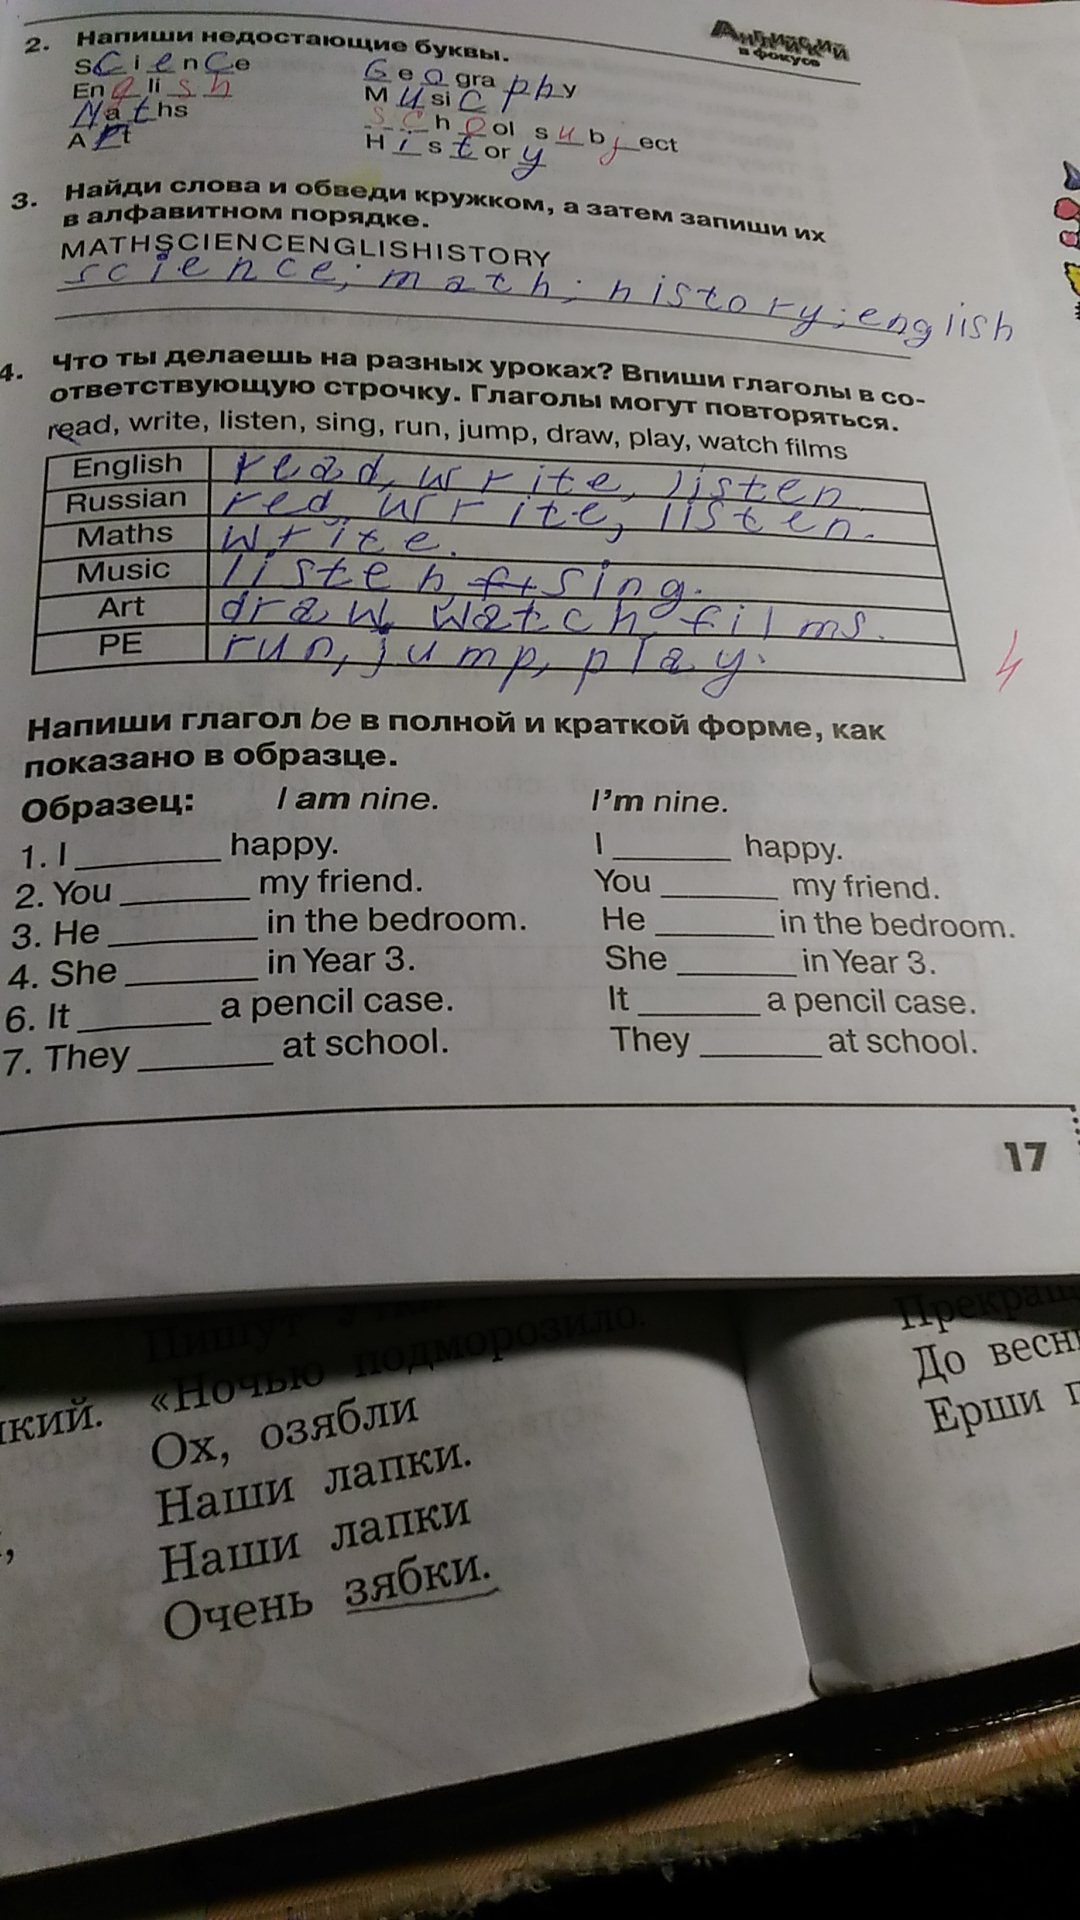 Английский
в фокусе
2. Напиши недостающие буквы.
Science
English
Maths
Art
Geography
Music
School subject
History
3. Найди слова и обведи кружком, а затем запиши их
в алфавитном порядке.
MATHSCIENCENGLISHISTORY
science; math; history; english
4. Что ты делаешь на разных уроках? Впиши глаголы в со-
ответствующую строчку. Глаголы могут повторяться.
read, write, listen, sing, run, jump, draw, play, watch films
English read, write, listen
Russian red, write, listen.
Maths write.
Music listen, sing.
Art draw, watch films.
PE run, jump, play.
4
Напиши глагол be в полной и краткой форме, как
показано в образце.
Образец: I am nine. I'm nine.
1. I ________ happy. I ________ happy.
2. You ________ my friend. You ________ my friend.
3. He ________ in the bedroom. He ________ in the bedroom.
4. She ________ in Year 3. She ________ in Year 3.
6. It ________ a pencil case. It ________ a pencil case.
7. They ________ at school. They ________ at school.
17
Пишут
«Ночью подморозило.
Ох, озябли
Наши лапки.
Наши лапки
Очень зябки.
До
Ерши